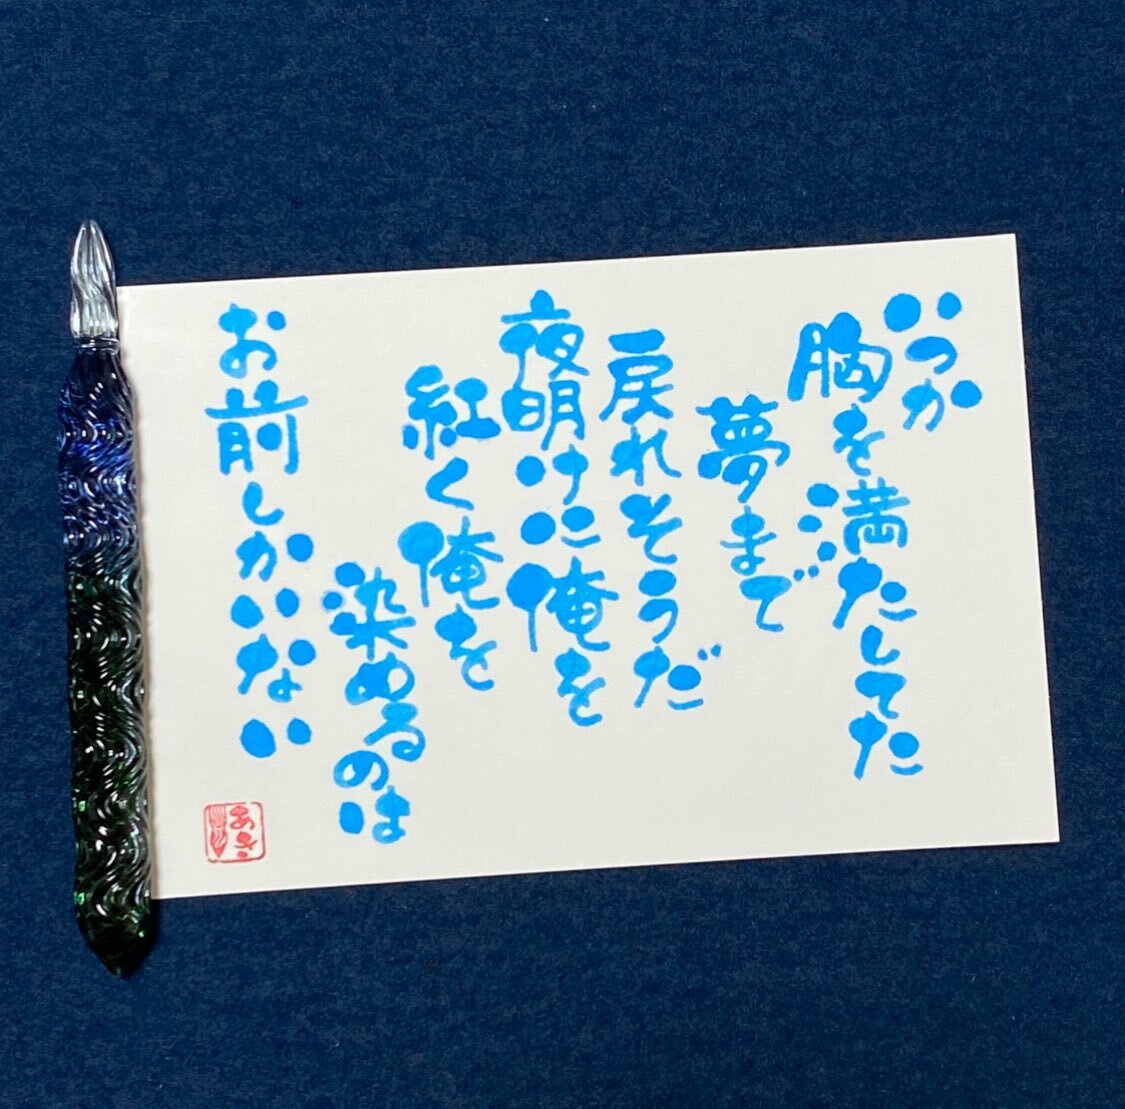 いつか
胸を満たしてた
夢まで
戻れそうだ
夜明けに俺を
紅く俺を
染めるのは
お前しかいない
あき